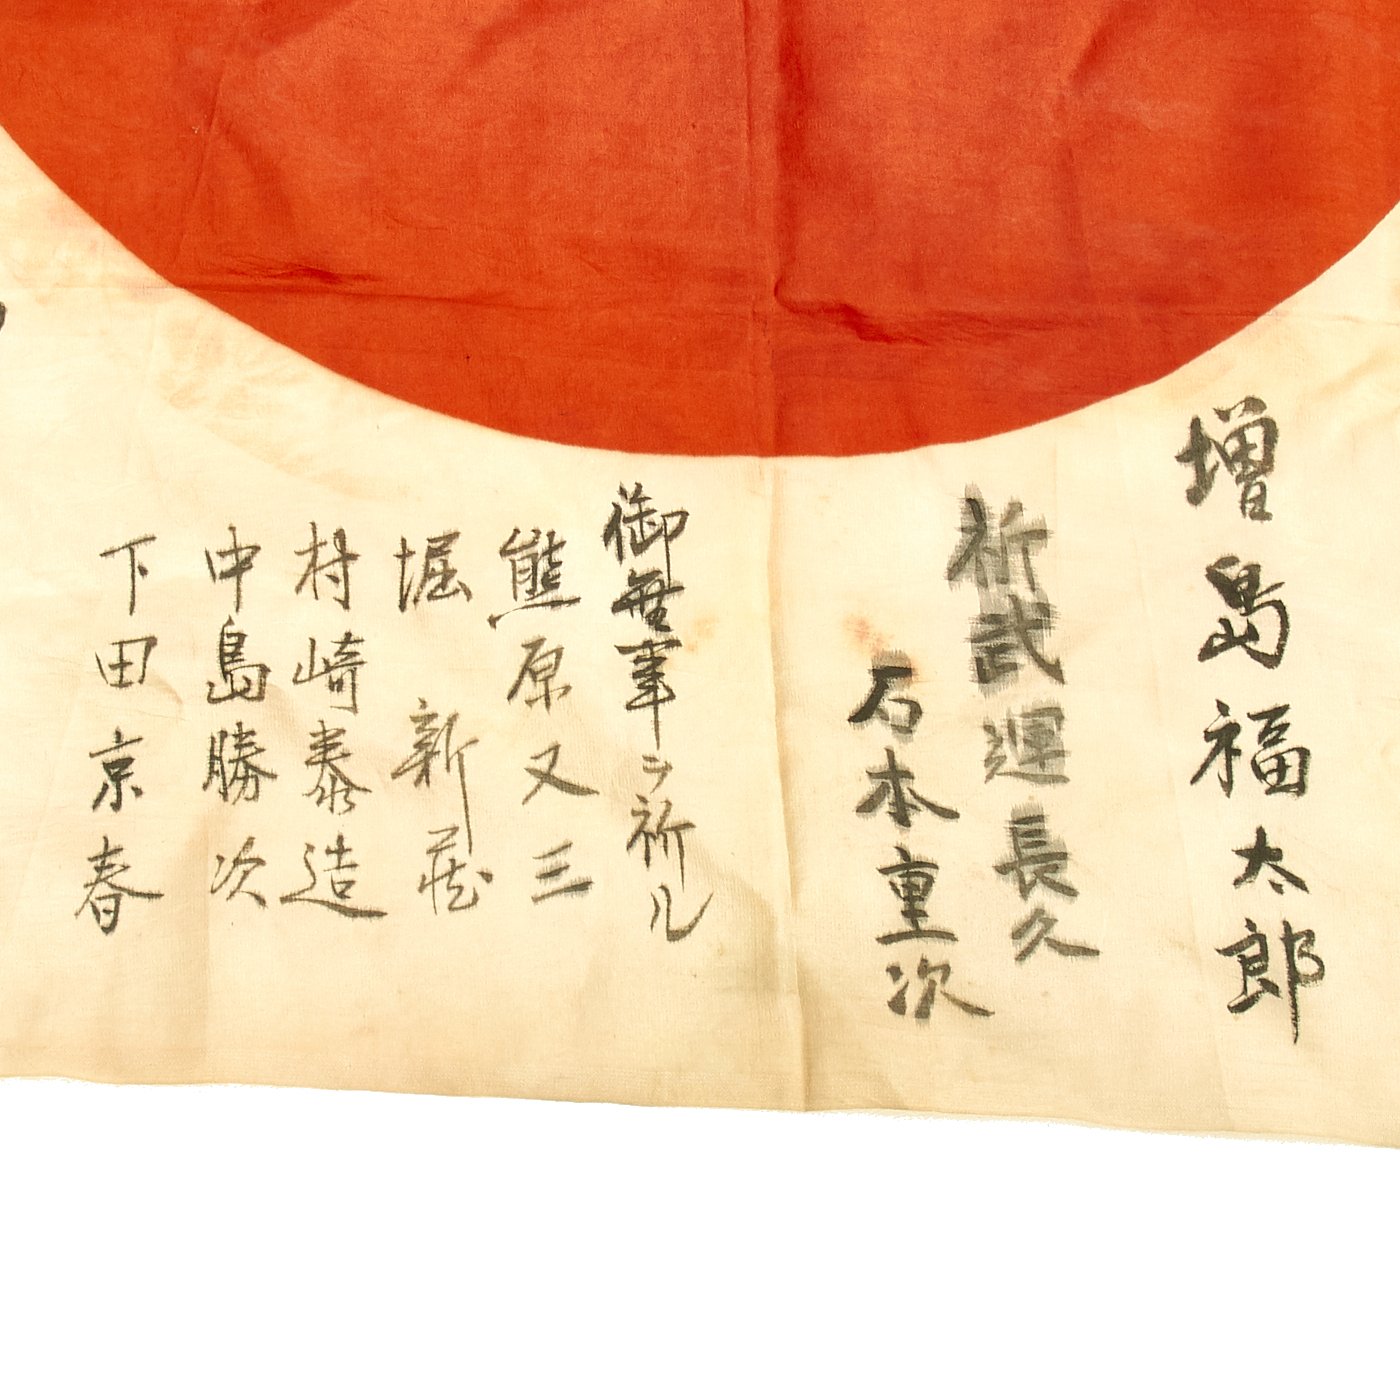 増島福太郎
祈武運長久
石本重次
御無事ヲ祈ル
熊原又三
堀新蔵
村崎泰造
中島勝次
下田京春